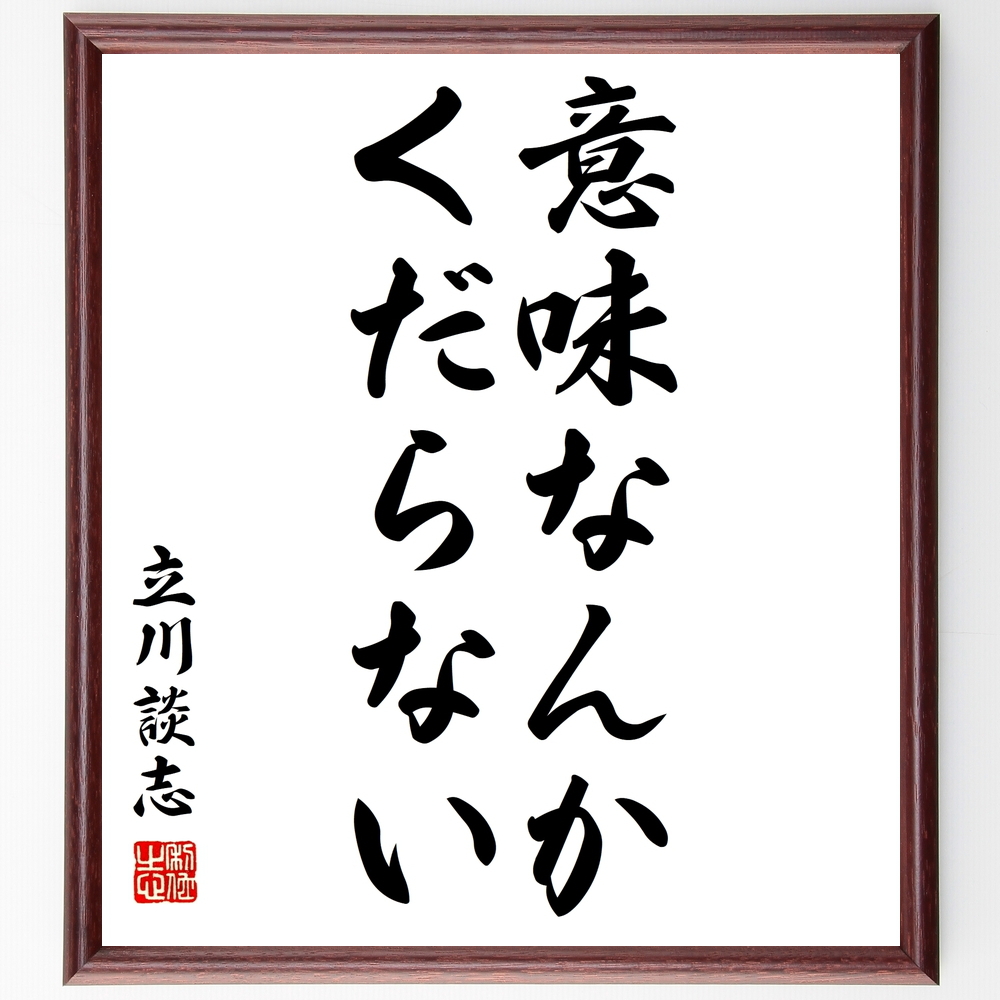 意味なんか
くだらない
立川談志